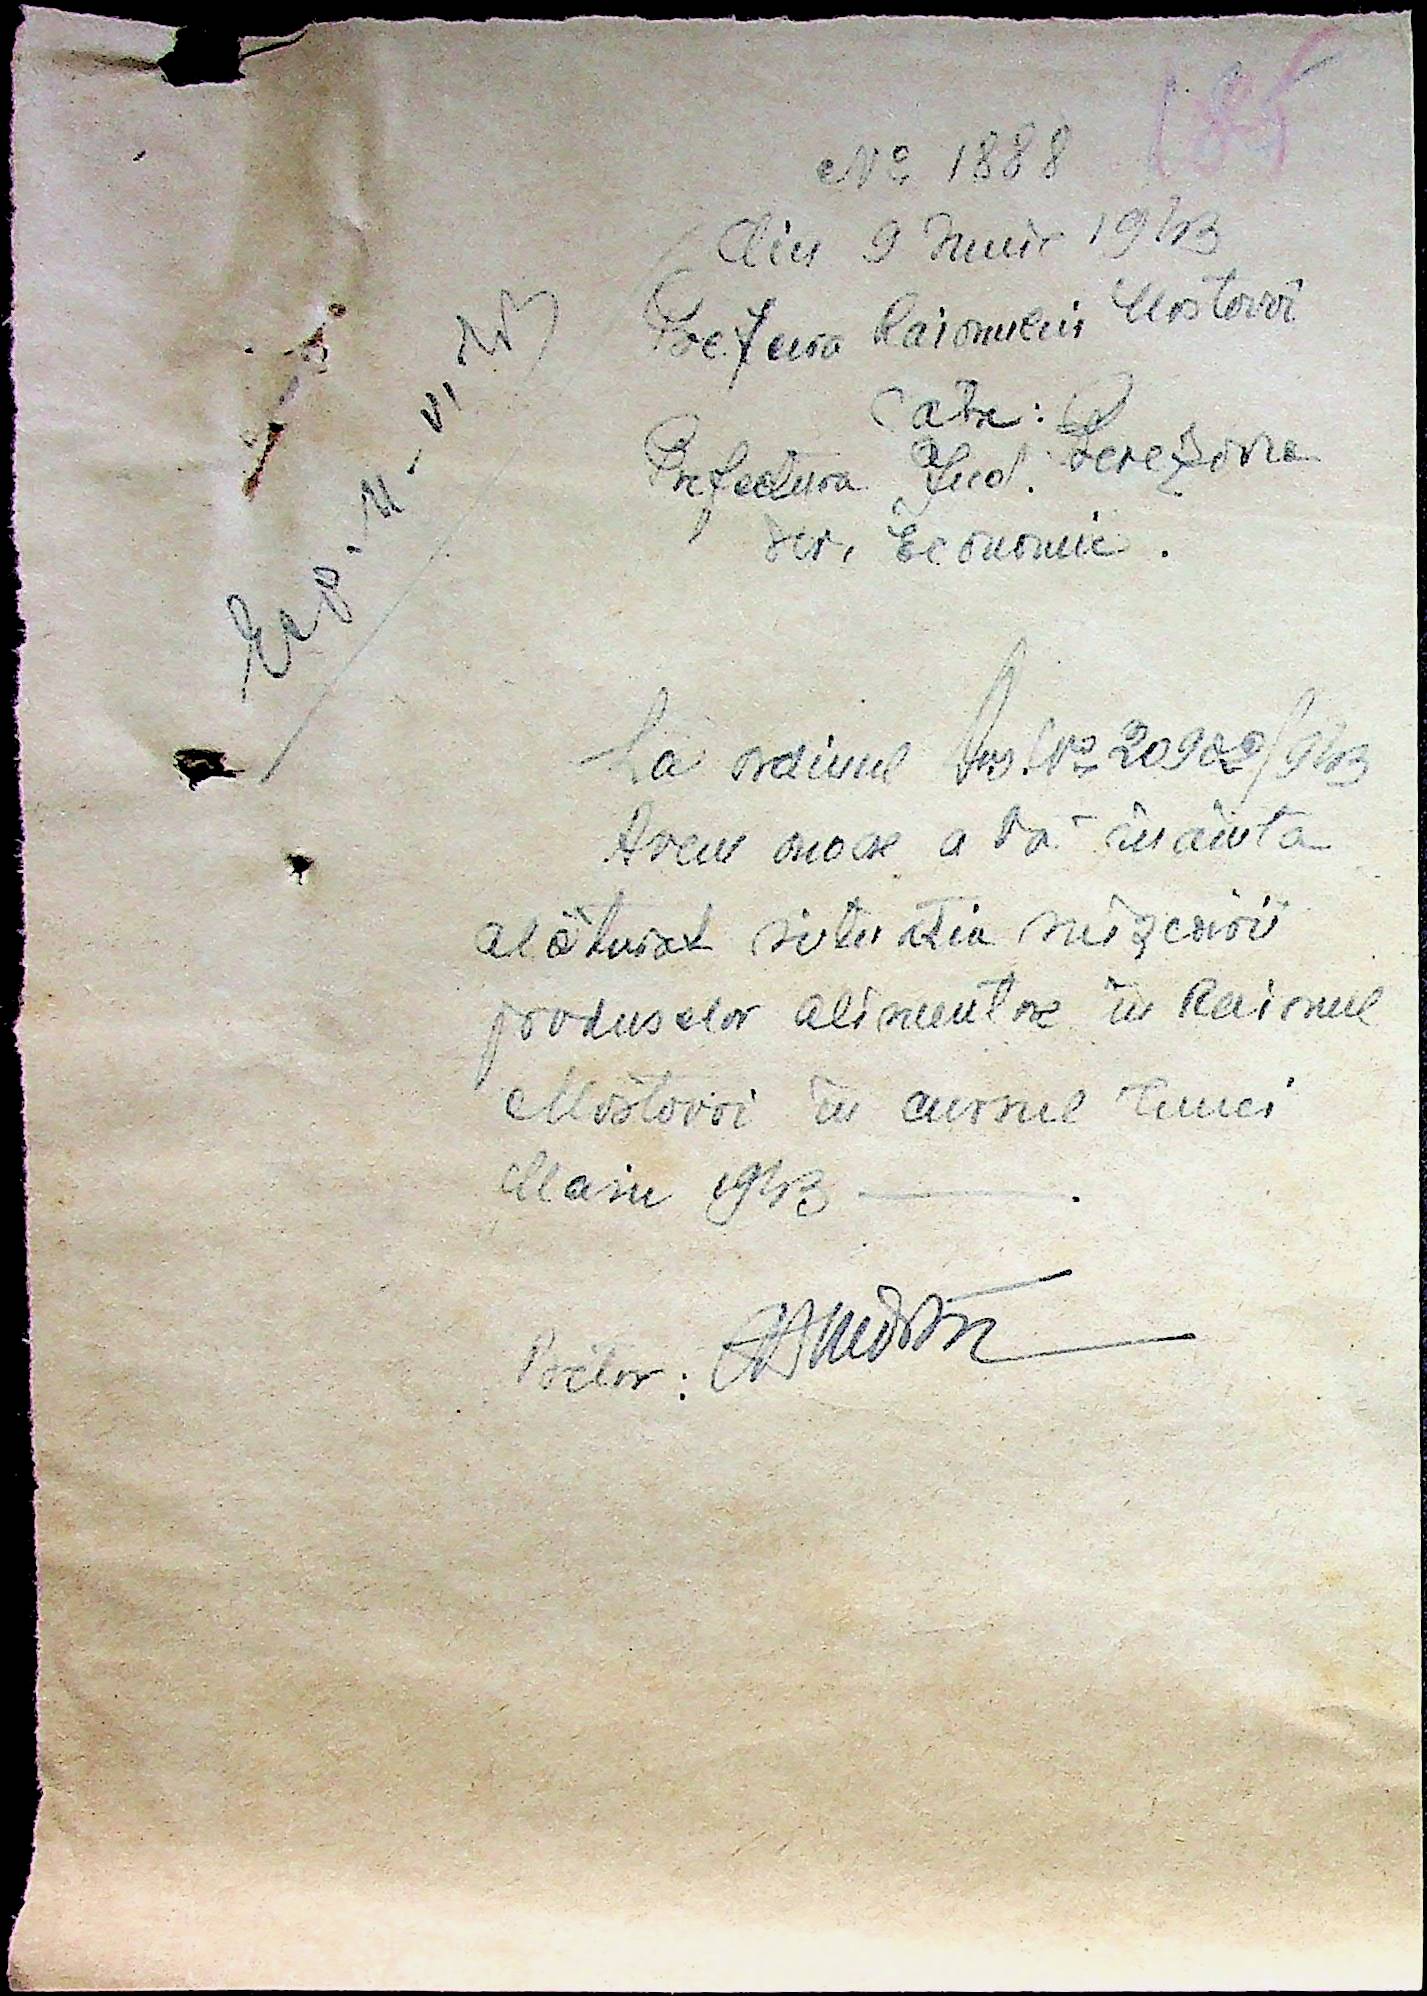 185
No 1888
din 9 Iunie 1943
Pretura Raionului Mostovoi
Catre:
Prefectura Jud. Berezovca
Ser. Economic.
La ordinul Dvs. No 20902/943
Avem onoare a Vă înainta
alăturat situația mișcării
produselor alimentare în Raionul
Mostovoi în cursul lunei
Maiu 1943 .
Pretor: